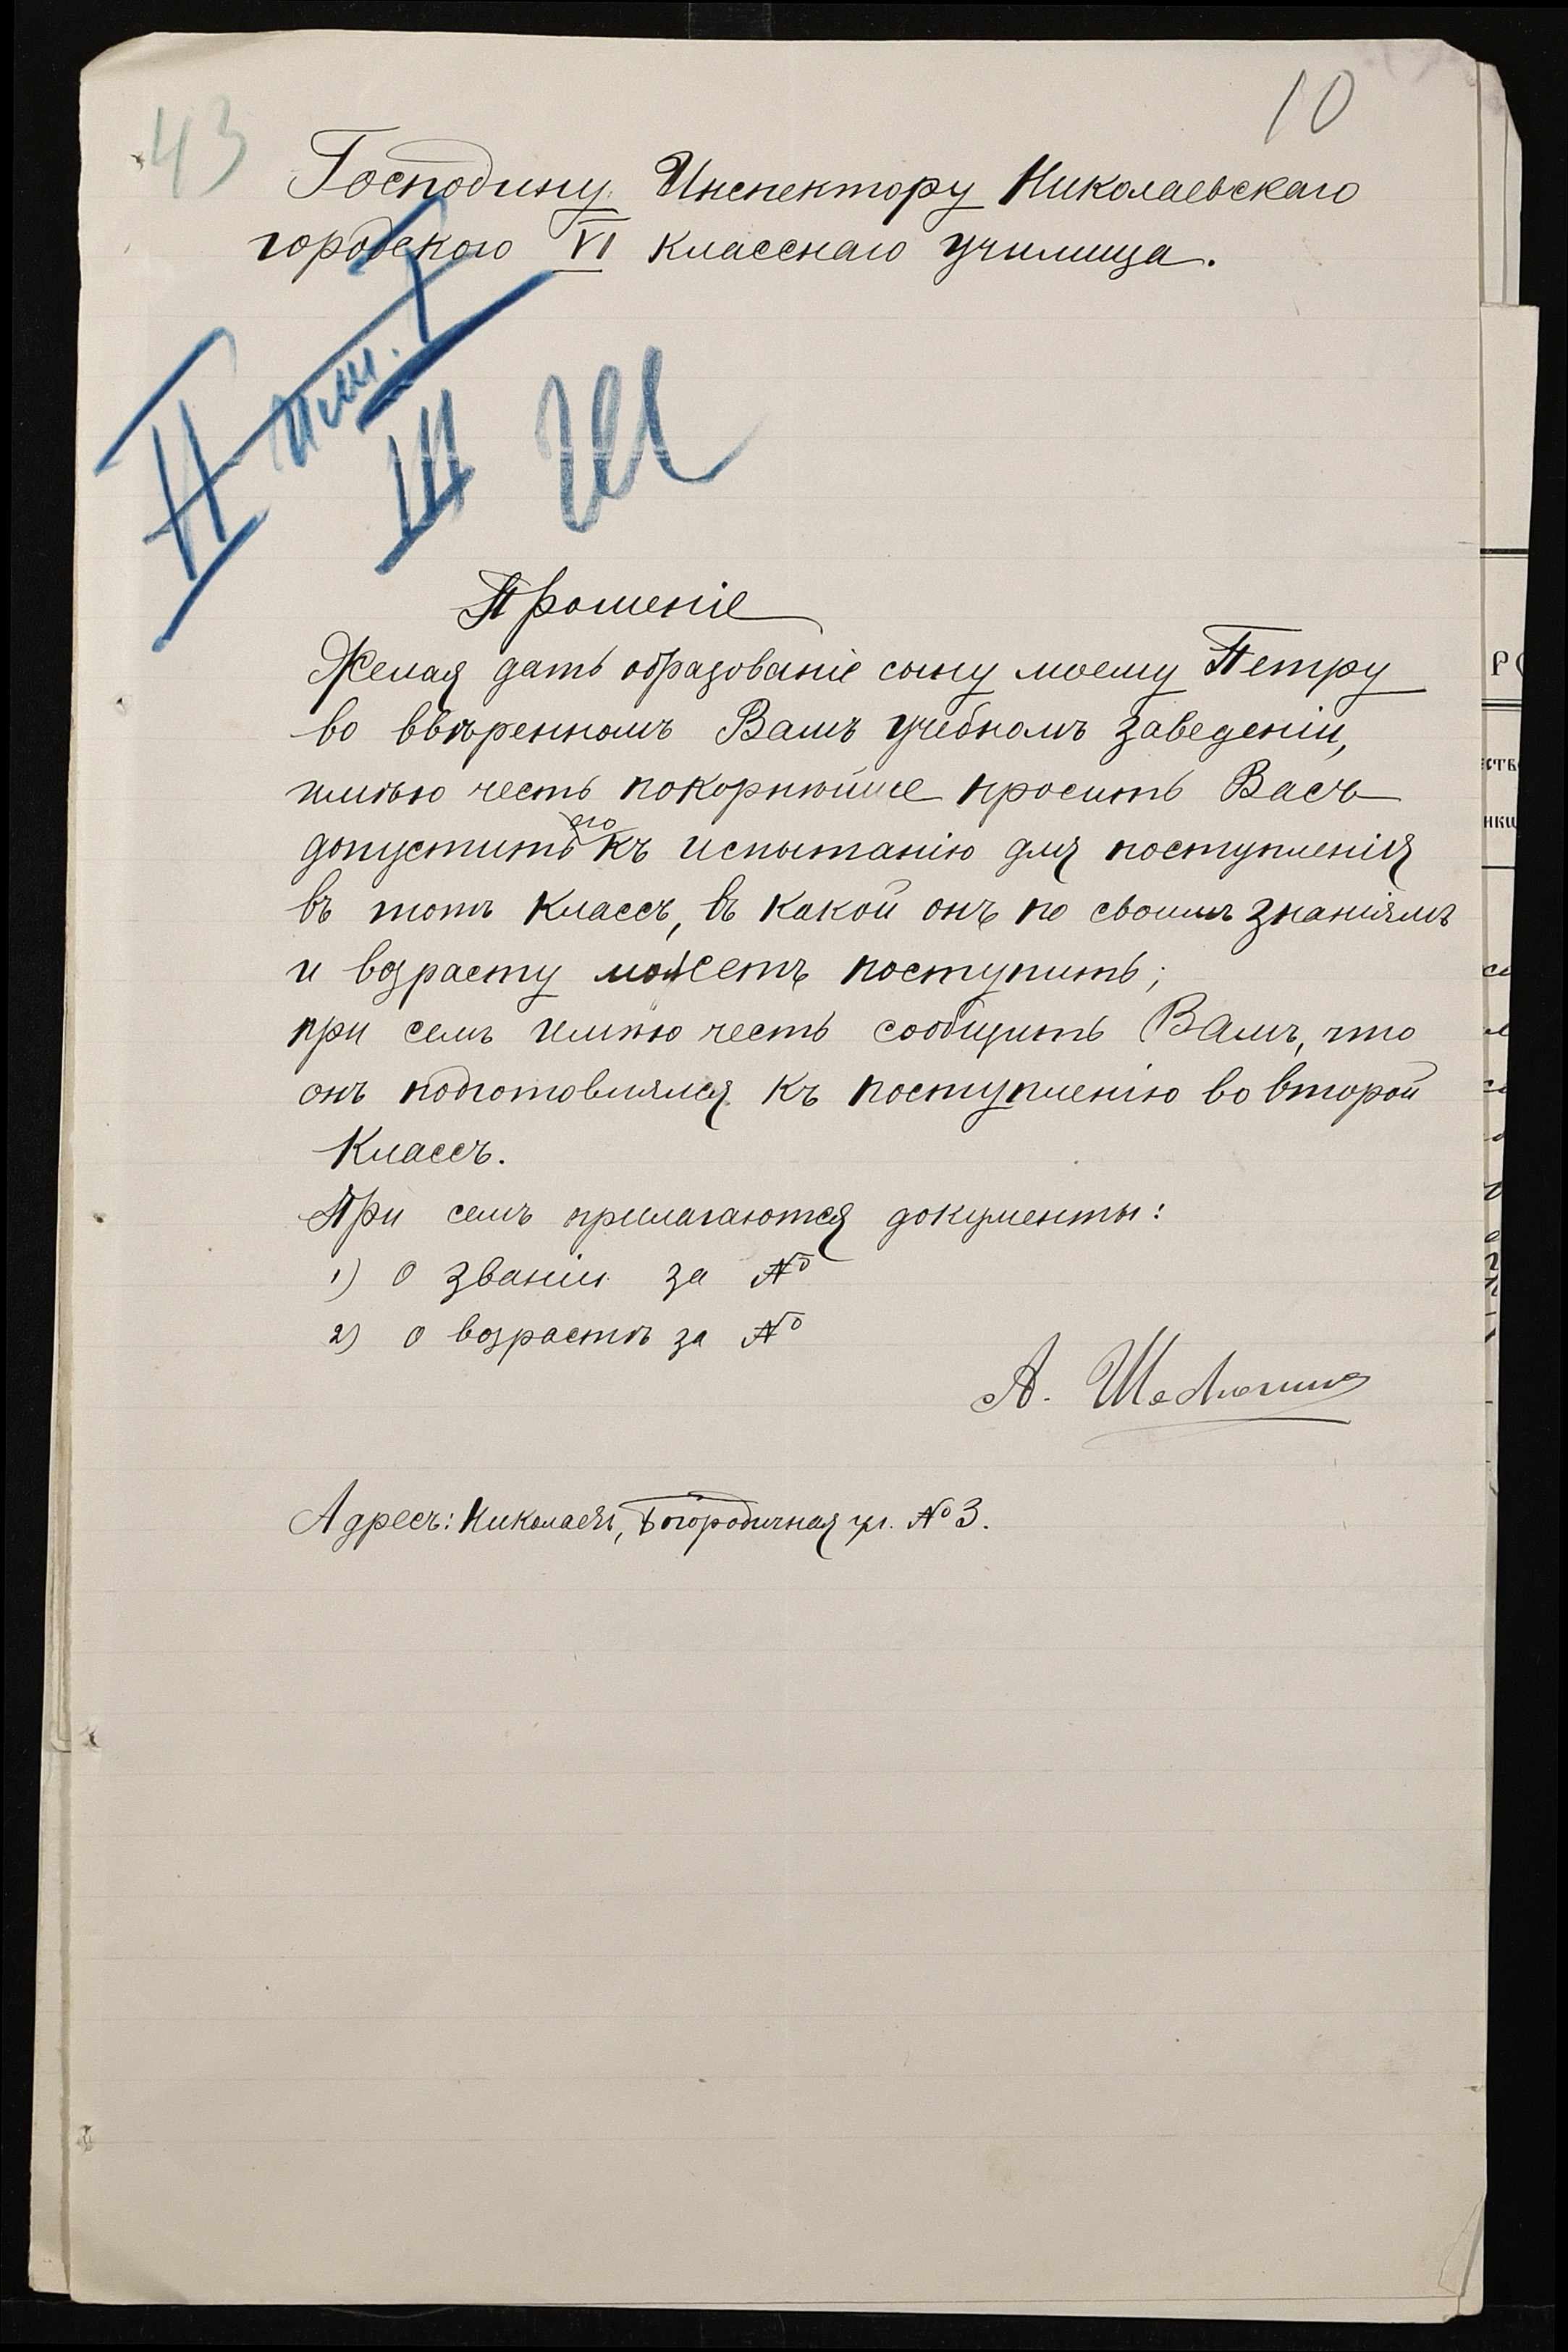 43
10
Господину Инспектору Николаевскаго
городского VI класснаго училища.
II
I
III
Прошеніе
Желая дать образованіе сыну моему Петру
во ввѣренномъ Вамъ учебномъ заведеніи,
имѣю честь покорнѣйше просить Васъ
его
допустить къ испытанію для поступленія
въ тотъ классъ, въ какой онъ по своимъ знаніямъ
и возрасту можетъ поступить;
при семъ имѣю честь сообщить Вамъ, что
онъ подготовлялся къ поступленію во второй
классъ.
При семъ прилагаются документы:
1) о званіи за №
2) о возрастѣ за №
А.
Адресъ: Николаевъ, Богородичная ул. № 3.